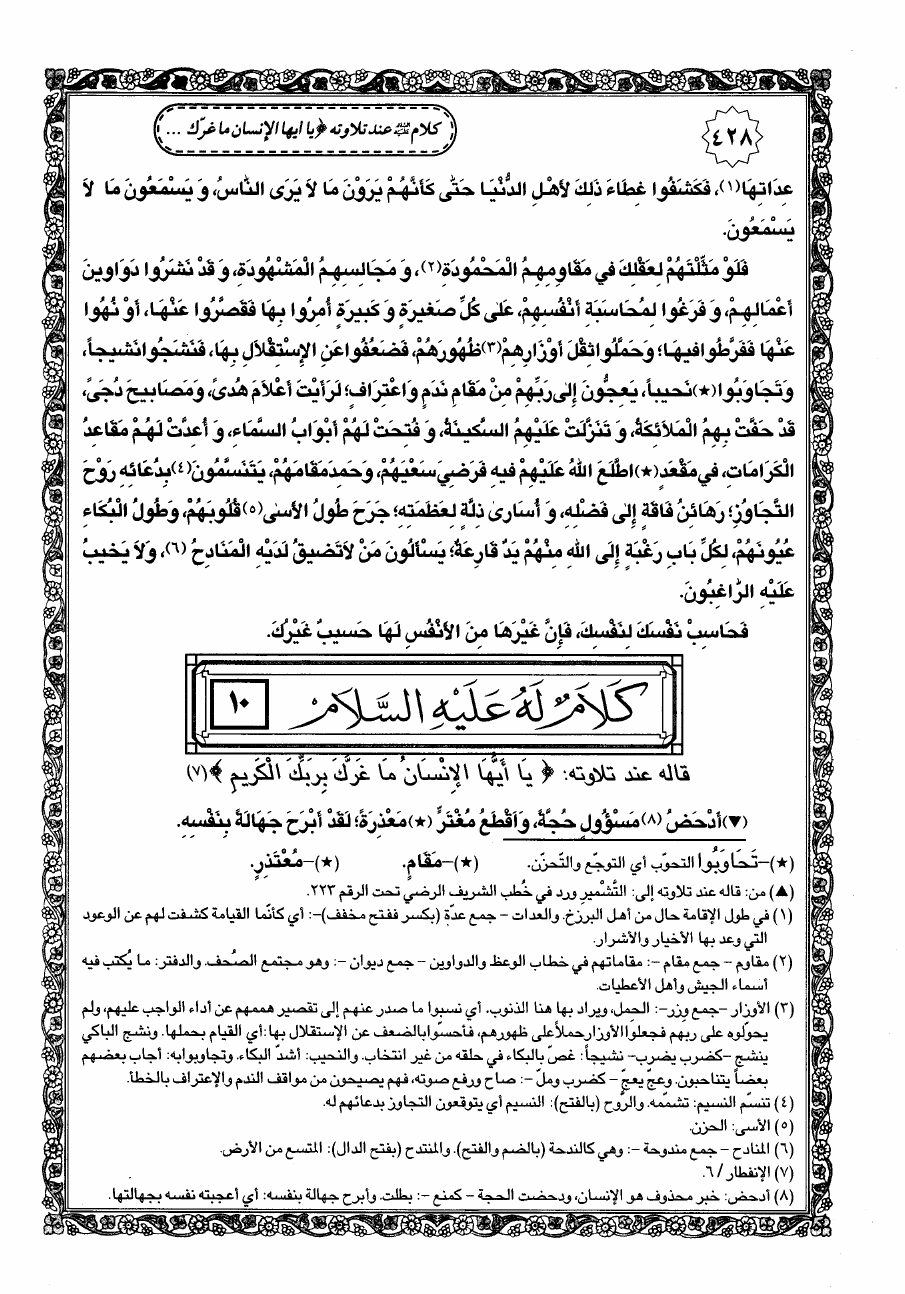 ٤٢٨
كلام عليه السلام عند تلاوته ﴿يا أيها الإنسان ما غرّك ...
عِدَاتِهَا(١)، فَكَشَفُوا غِطَاءَ ذَلِكَ لأَهْلِ الدُّنْيَا حَتّٰى كَأَنَّهُمْ يَرَوْنَ مَا لاَ يَرَى النّاسُ، وَ يَسْمَعُونَ مَا لاَ
يَسْمَعُونَ.
فَلَوْ مَثَّلْتَهُمْ لِعَقْلِكَ في مَقَاوِمِهِمُ الْمَحْمُودَةِ(٢)، وَ مَجَالِسِهِمُ الْمَشْهُودَةِ، وَ قَدْ نَشَرُوا دَوَاوينَ
أَعْمَالِهِمْ، وَ فَرَغُوا لِمُحَاسَبَةِ أَنْفُسِهِمْ، عَلىٰ كُلِّ صَغيرَةٍ وَ كَبيرَةٍ أُمِرُوا بِهَا فَقَصَّرُوا عَنْهَا، أَوْ نُهُوا
عَنْهَا فَفَرَّطُوا فيهَا؛ وَ حَمَّلُوا ثِقَلَ أَوْزَارِهِمْ(٣) ظُهُورَهُمْ، فَضَعُفُوا عَنِ الاِسْتِقْلاَلِ بِهَا، فَنَشَجُوا نَشيجاً،
وَ تَجَاوَبُوا(★) نَحيباً، يَعِجُّونَ إِلىٰ رَبِّهِمْ مِنْ مَقَامِ نَدَمٍ وَ اعْتِرَافٍ؛ لَرَأَيْتَ أَعْلاَمَ هُدىً، وَ مَصَابيحَ دُجىً،
قَدْ حَفَّتْ بِهِمُ الْمَلاَئِكَةُ، وَ تَنَزَّلَتْ عَلَيْهِمُ السَّكينَةُ، وَ فُتِحَتْ لَهُمْ أَبْوَابُ السَّمَاءِ، وَ أُعِدَّتْ لَهُمْ مَقَاعِدُ
الْكَرَامَاتِ، في مَقْعَدٍ(★) اطَّلَعَ اللّٰهُ عَلَيْهِمْ فيهِ فَرَضِيَ سَعْيَهُمْ، وَ حَمِدَ مَقَامَهُمْ، يَتَنَسَّمُونَ(٤) بِدُعَائِهِ رَوْحَ
التَّجَاوُزِ؛ رَهَائِنُ فَاقَةٍ إِلىٰ فَضْلِهِ، وَ أُسَارىٰ ذِلَّةٍ لِعَظَمَتِهِ؛ جَرَحَ طُولُ الأَسىٰ(٥) قُلُوبَهُمْ، وَ طُولُ الْبُكَاءِ
عُيُونَهُمْ، لِكُلِّ بَابِ رَغْبَةٍ إِلَى اللّٰهِ مِنْهُمْ يَدٌ قَارِعَةٌ؛ يَسْأَلُونَ مَنْ لاَ تَضيقُ لَدَيْهِ الْمَنَادِحُ (٦)، وَ لاَ يَخيبُ
عَلَيْهِ الرّاغِبُونَ.
فَحَاسِبْ نَفْسَكَ لِنَفْسِكَ، فَإِنَّ غَيْرَهَا مِنَ الأَنْفُسِ لَهَا حَسيبٌ غَيْرُكَ.
كَلَامٌ لَهُ عَلَيْهِ السَّلَامُ ١٠
قاله عند تلاوته: ﴿ يَا أَيُّهَا الإِنْسَانُ مَا غَرَّكَ بِرَبِّكَ الْكَريمِ ﴾(٧)
(▼) أَدْحَضُ (٨) مَسْؤُولٍ حُجَّةً، وَ أَقْطَعُ مُغْتَرٍّ (★) مَعْذِرَةً؛ لَقَدْ أَبْرَحَ جَهَالَةً بِنَفْسِهِ.
(★)–تَحَاوَبُوا التحوّب أي التوجّع والتّحزّن. (★)–مَقَامٍ. (★)–مُعْتَذِرٍ.
(▲) من: قاله عند تلاوته إلى: التَّشْميرِ ورد في خُطب الشريف الرضي تحت الرقم ٢٢٣.
(١) في طول الإقامة حال من أهل البرزخ. والعدات – جمع عِدّة (بكسر ففتح مخفف)–: أي كأنّما القيامة كشفت لهم عن الوعود
التي وعد بها الأخيار والأشرار.
(٢) مقاوم – جمع مقام –: مقاماتهم في خطاب الوعظ والدواوين – جمع ديوان –: وهو مجتمع الصُحف. والدفتر: ما يُكتب فيه
أسماء الجيش وأهل الأعطيات.
(٣) الأوزار –جمع وِزر–: الحِمل، ويراد بها هنا الذنوب. أي نسبوا ما صدر عنهم إلى تقصير هممهم عن أداء الواجب عليهم، ولم
يحوّلوه على ربهم فجعلوا الأوزار حملاً على ظهورهم، فأحسّوا بالضعف عن الإستقلال بها:أي القيام بحملها. ونشج الباكي
ينشج –كضرب يضرب– نشيجاً: غصّ بالبكاء في حلقه من غير انتخاب. والنحيب: أشدّ البكاء. وتجاوبوا به: أجاب بعضهم
بعضاً يتناحبون. وعجّ يعجّ – كضرب وملّ –: صاح ورفع صوته، فهم يصيحون من مواقف الندم والإعتراف بالخطأ.
(٤) تنسّم النسيم: تشمّمه. والرَّوح (بالفتح): النسيم أي يتوقعون التجاوز بدعائهم له.
(٥) الأسى: الحزن.
(٦) المنادح – جمع مندوحة –: وهي كالندحة (بالضم والفتح). والمنتدح (بفتح الدال): المتسع من الأرض.
(٧) الإنفطار / ٦.
(٨) أدحض: خبر محذوف هو الإنسان، ودحضت الحجة – كمنع –: بطلت. وأبرح جهالة بنفسه: أي أعجبته نفسه بجهالتها.